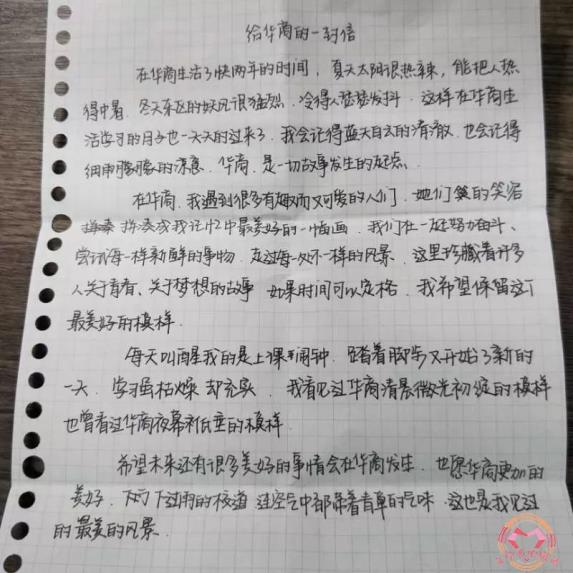 给华商的一封信
在华商生活了快两年的时间，夏天太阳很热辣，能把人热
得中暑，冬天东区的妖风很猛烈，冷得人瑟瑟发抖，这样在华商生
活学习的日子也一天天的过来了，我会记得蓝天白云的清澈，也会记得
细雨朦胧的凉意，华商，是一切故事发生的起点。
在华商，我遇到很多有趣而又可爱的人们，她们笑的笑容
拼凑成我记忆中最美好的一幅画，我们在一起努力奋斗、
尝试每一样新鲜的事物，走过每一处不一样的风景，这里珍藏着许多
人关于青春、关于梦想的故事 如果时间可以定格，我希望保留这个
最美好的模样.
每天叫醒我的是上课闹钟，踏着脚步又开始了新的
一天，学习虽枯燥 却充实，我看见过华商清晨微光初绽的模样
也曾看过华商夜幕低垂的模样.
希望未来还有很多美好的事情会在华商发生，也愿华商更加的
美好，下过雨的校道 连空气中都带着青草的气味，这也是我见过
的最美的风景.